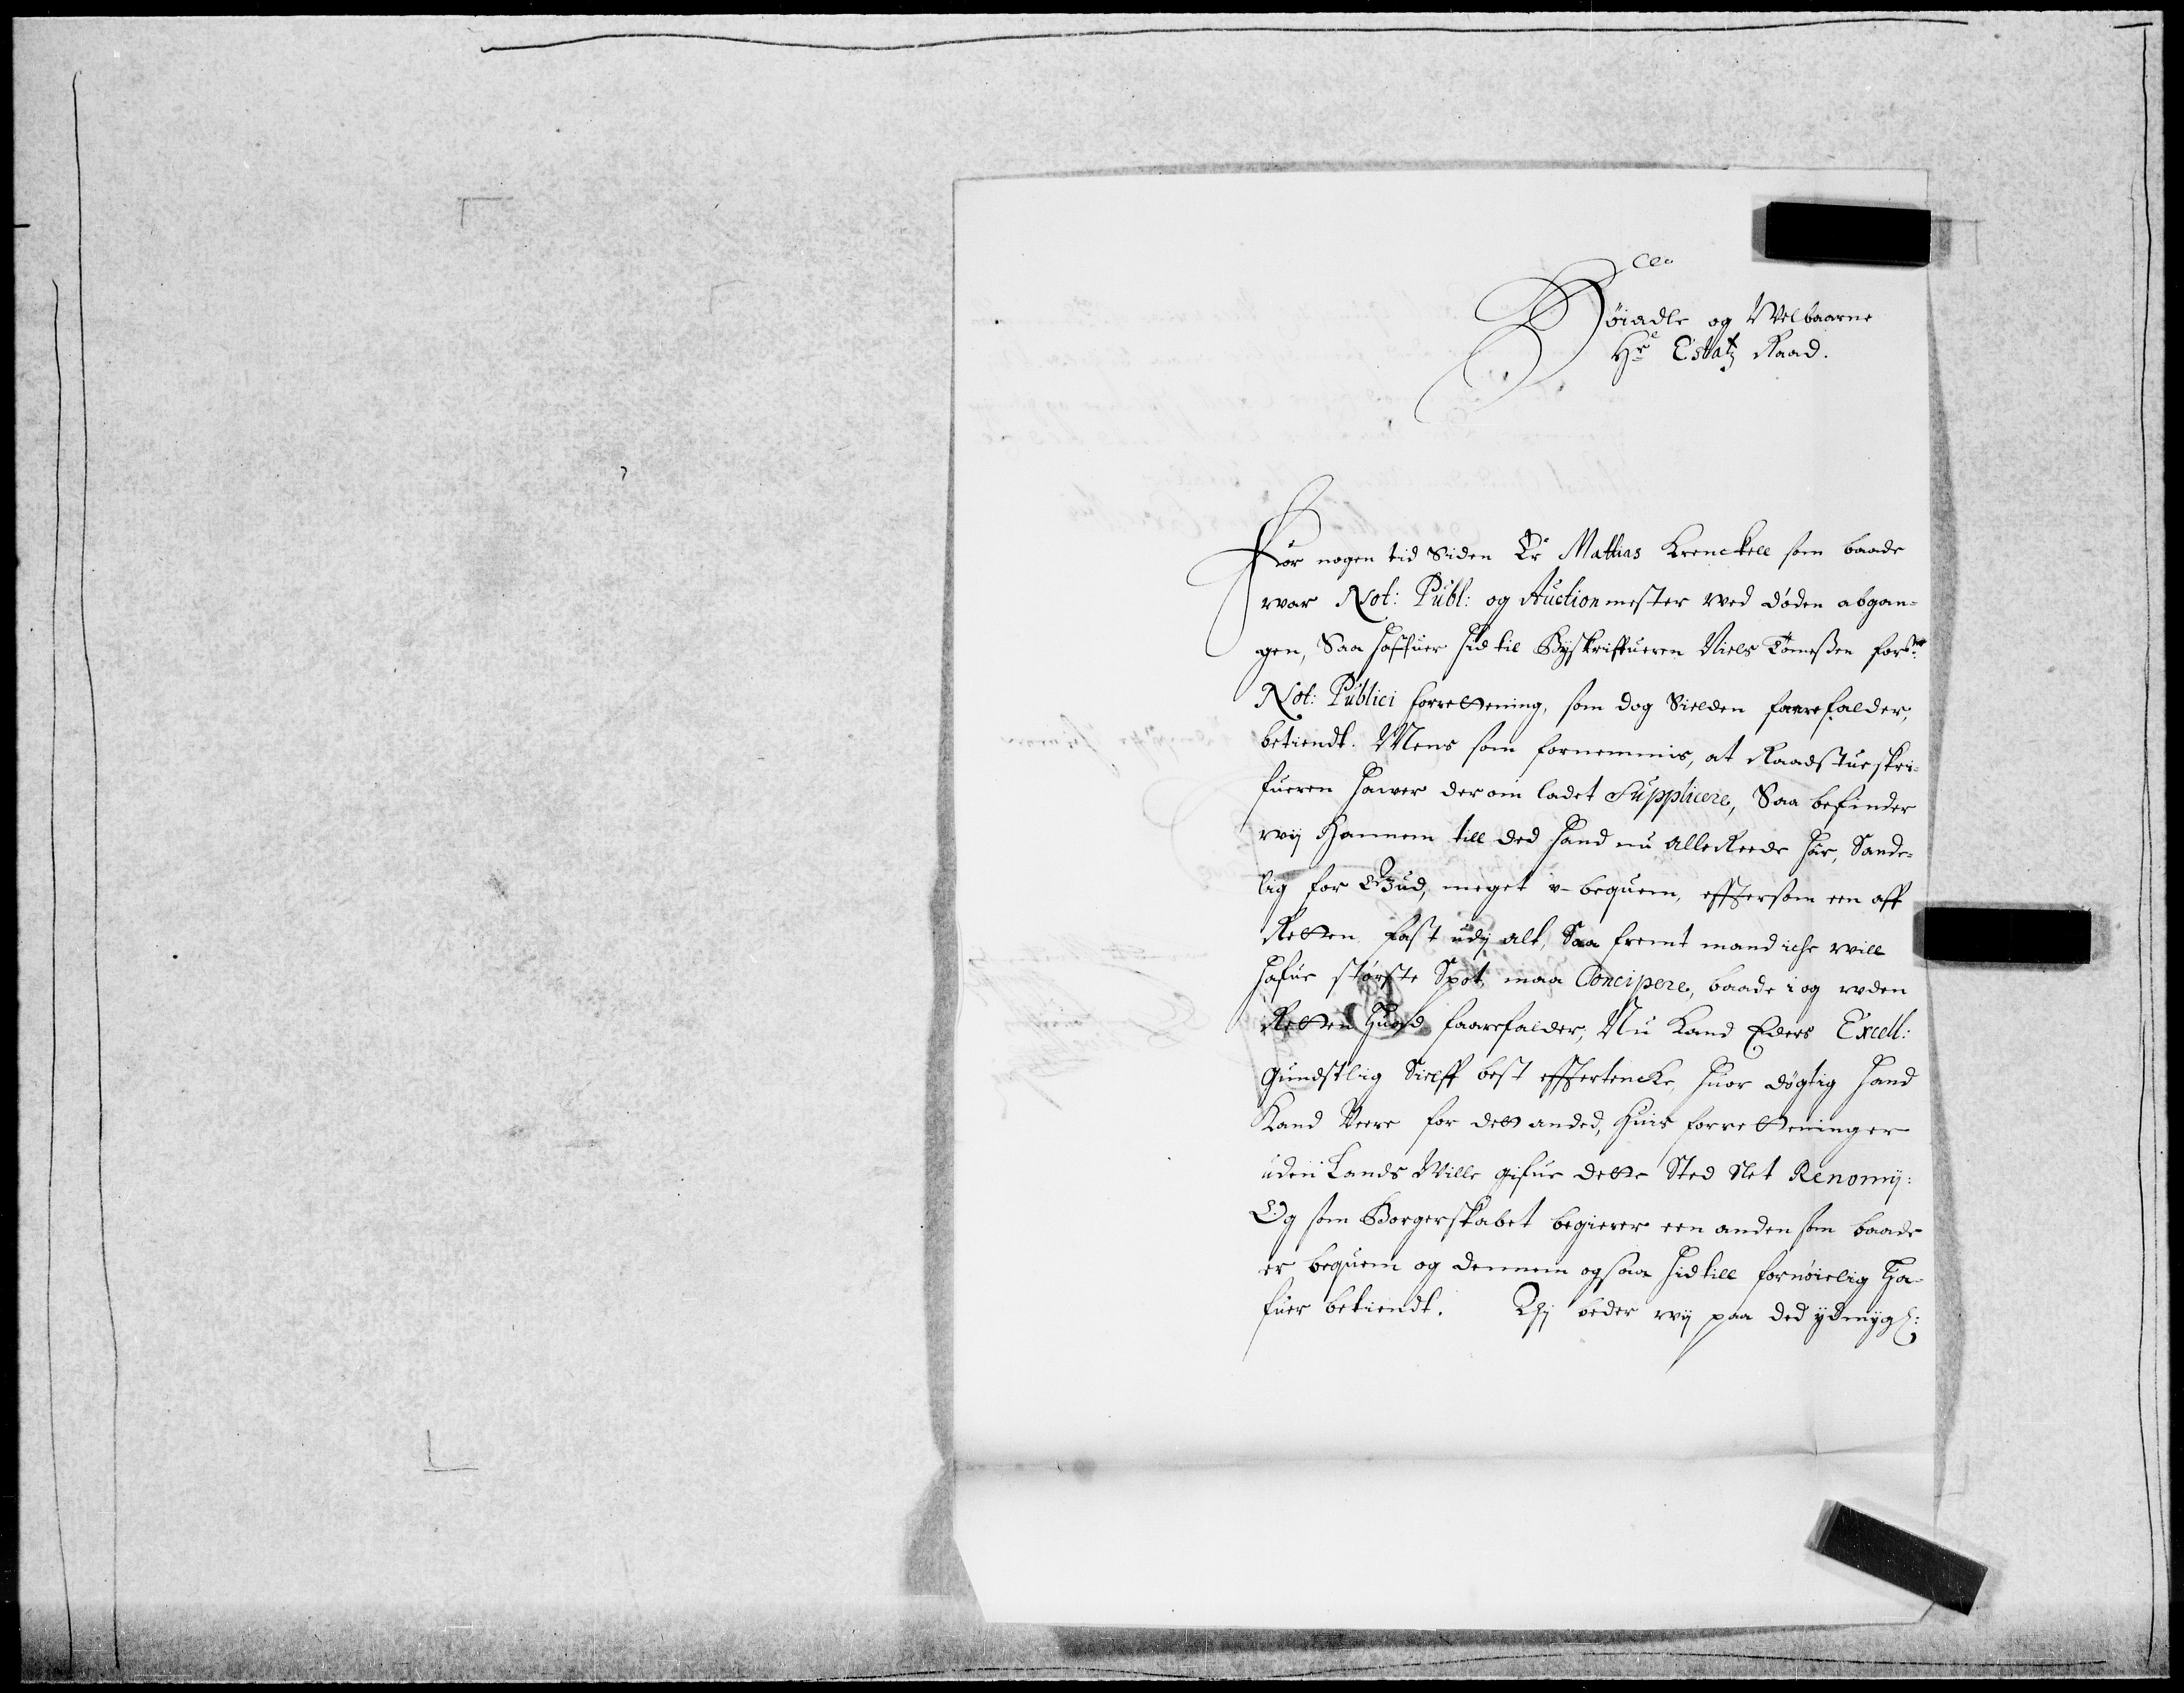 Høiædle og Welbaarne
Hr Estatz Raad.
For nogen tid siden Er Mathias Krenckell som baade
war Not: Publ: og Auctionmester wed døden abgan-
gen, Saa haffuer hid til Byskriffueren Niels Tomeßen
Not: Publici forrettening, som dog Sielden faarefalder,
betiendt. Mens som fornemmis, at Raadstueskri-
fueren hawer der om ladet Supplicere, Saa befinder
wij Hannem till ded hand nu allereede har, Sande-
lig for Gud, meget u-bequem, efftersom een aff
Retten fast udj alt, Saa fremt mand iche will
hafue største Spot, maa Concipere, baade i og uden
Retten huad faarefalder, Nu kand Eders Excell:
gundstlig Sielff best effertencke, huor døgtig hand
Kand Veere for dett anded, huis forretteninger
uden Lands Wille gifue dette Sted slet Renomij:
Og som Borgerskabet begierer een anden som baade
er bequem og dennem ogsaa hid till fornøielig ha-
fuer betiendt. Thj beder wij paa ded ydmygl: